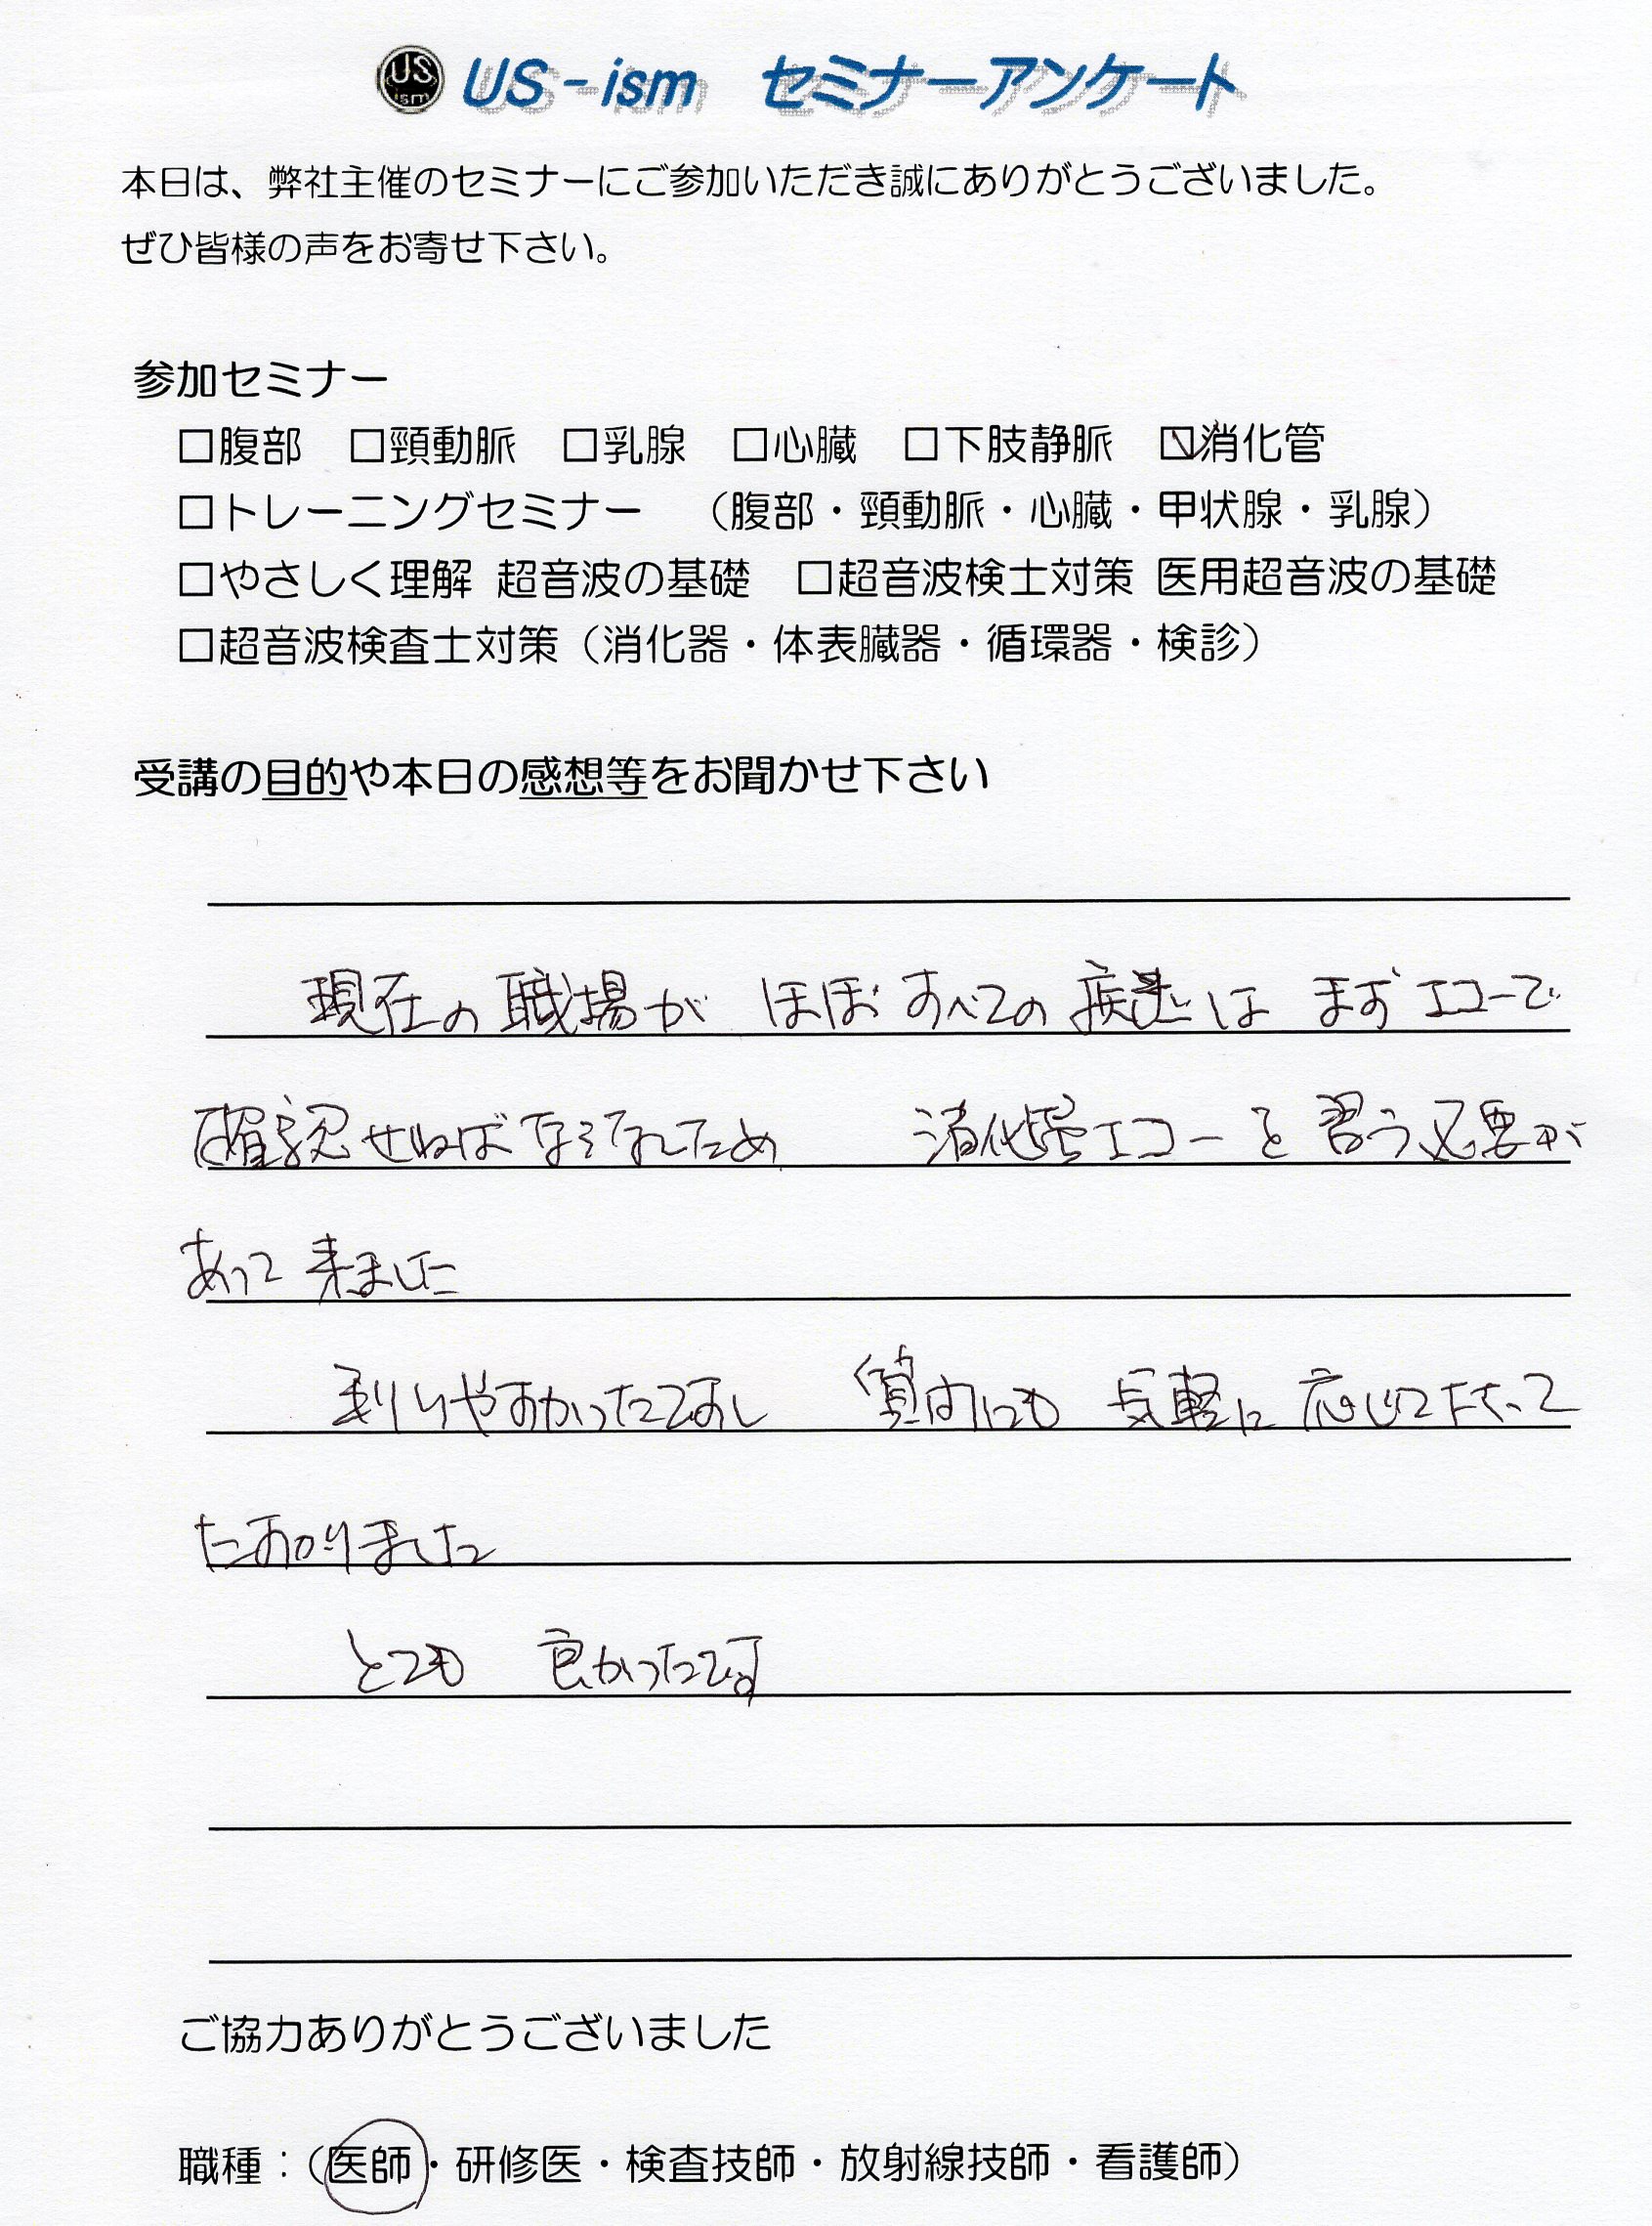 US ism US-ism セミナーアンケート
本日は、弊社主催のセミナーにご参加いただき誠にありがとうございました。
ぜひ皆様の声をお寄せ下さい。
参加セミナー
□腹部 □頸動脈 □乳腺 □心臓 □下肢静脈 ☑消化管
□トレーニングセミナー （腹部・頸動脈・心臓・甲状腺・乳腺）
□やさしく理解 超音波の基礎 □超音波検士対策 医用超音波の基礎
□超音波検査士対策（消化器・体表臓器・循環器・検診）
受講の目的や本日の感想等をお聞かせ下さい
現在の職場が ほぼ すべての 疾患は まず エコーで
確認せねばならないため 消化管エコーを 習う必要が
あって 来ました
わかりやすかったですし 質問にも 気軽に 応じて下さって
たすかりました
とても 良かったです
ご協力ありがとうございました
職種：（医師・研修医・検査技師・放射線技師・看護師）